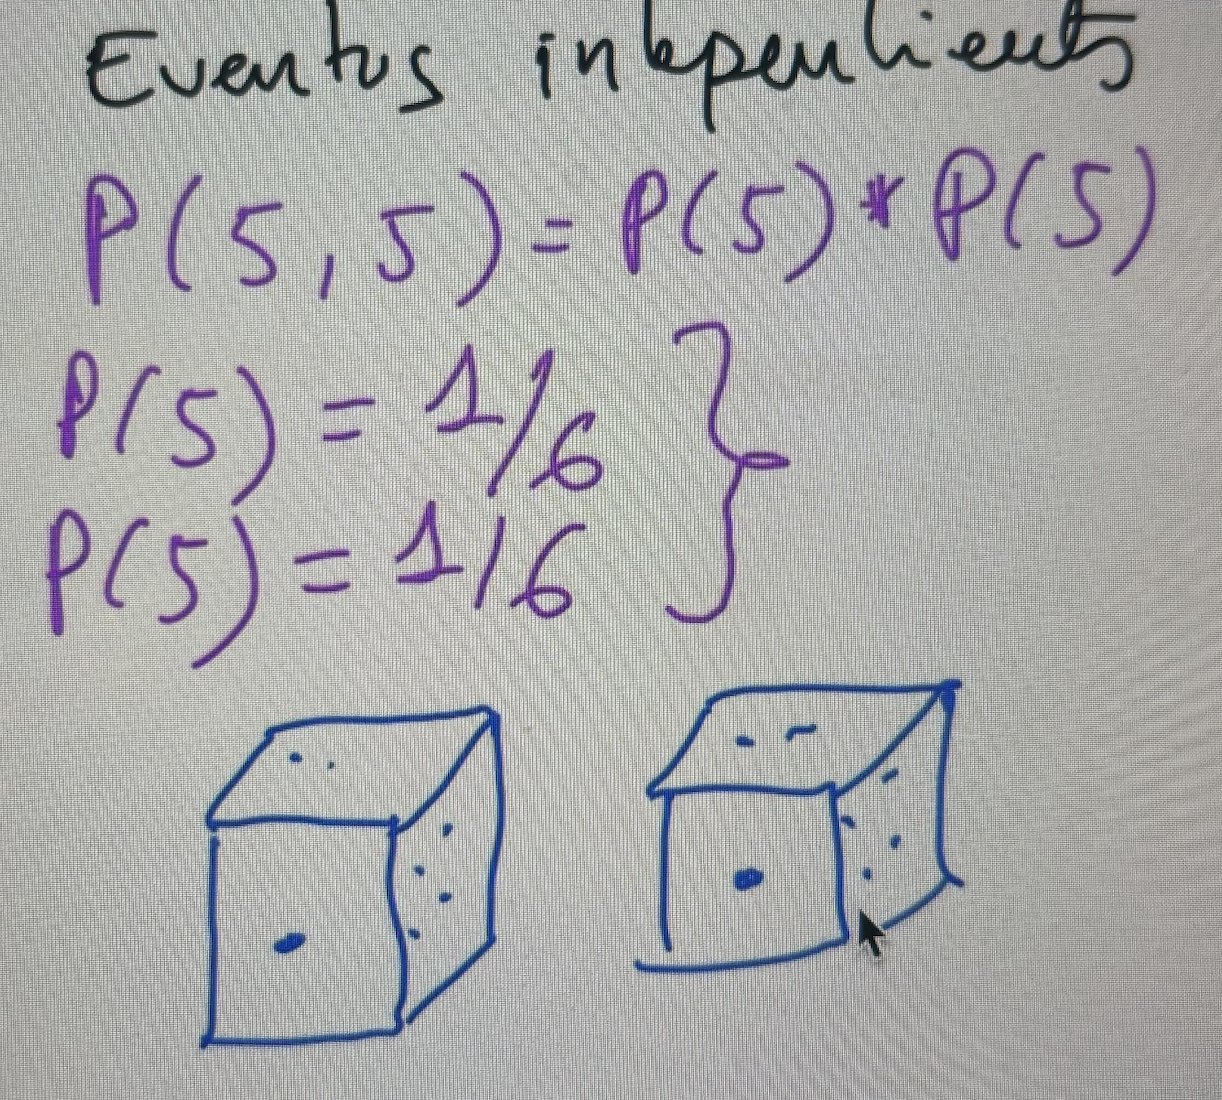 Eventos independientes
P(5,5) = P(5) * P(5)
P(5) = 1/6
P(5) = 1/6